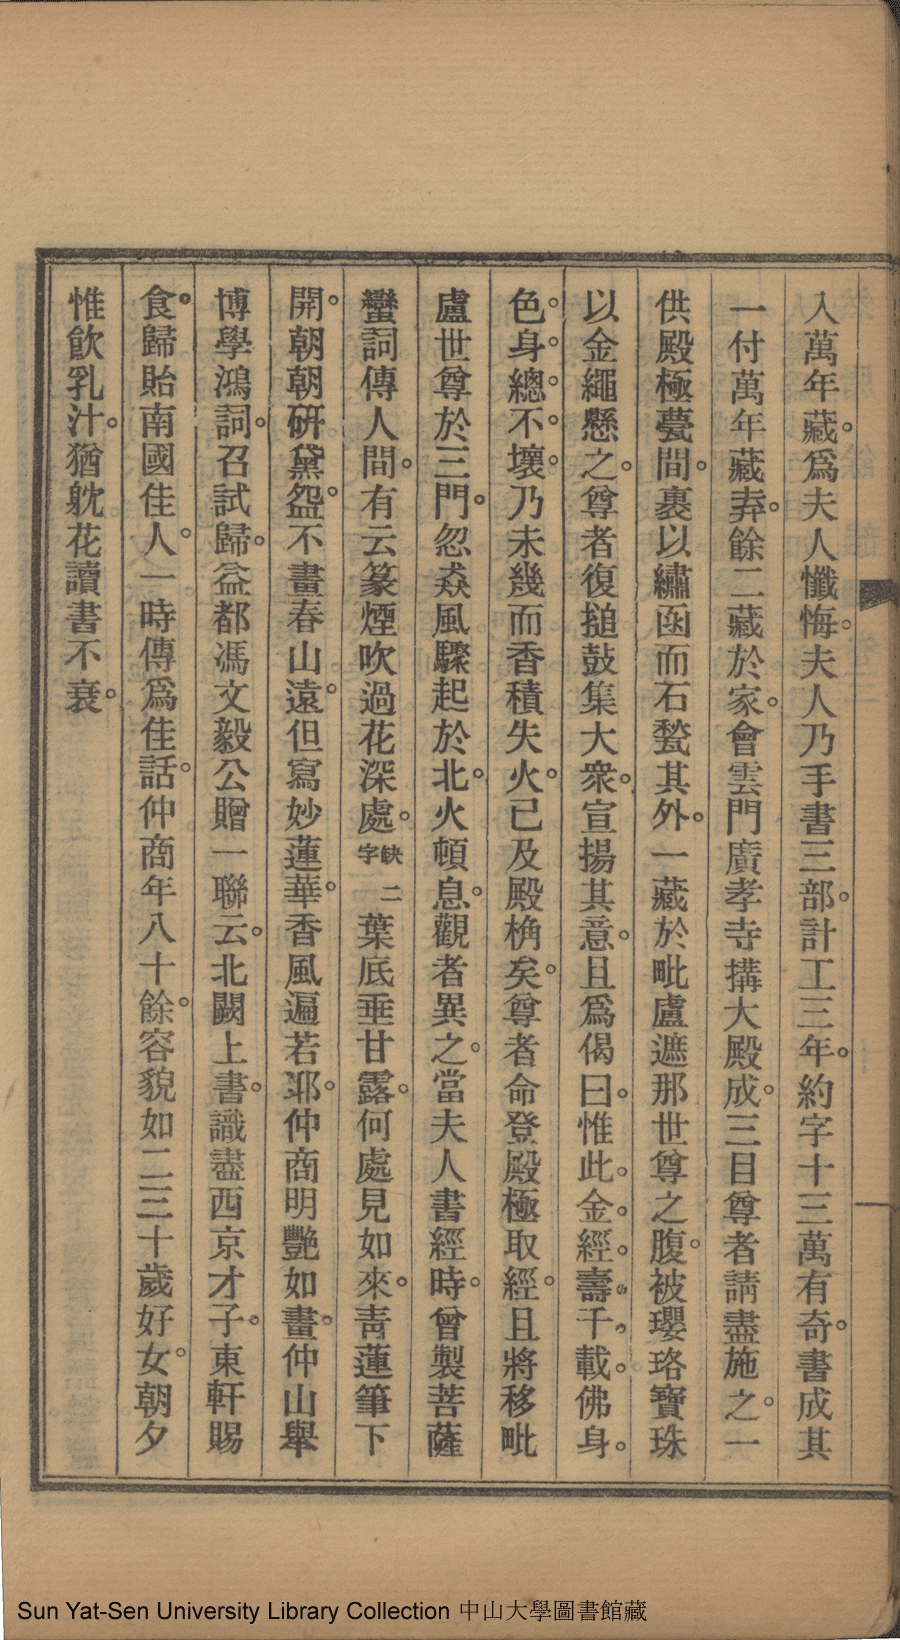 入萬年藏。爲夫人懺悔。夫人乃手書三部。計工三年。約字十三萬有奇。書成其
一付萬年藏弆。餘二藏於家。會雲門廣孝寺搆大殿成。三目尊者請盡施之。一
供殿極甍間。裹以繡函而石甃其外。一藏於毗盧遮那世尊之腹。被瓔珞寶珠
以金繩懸之。尊者復搥鼓集大衆。宣揚其意。且爲偈曰。惟此。金。經。壽。千。載。佛身。
色。身。總。不。壞。乃未幾而香積失火。已及殿桷矣。尊者命登殿極取經。且將移毗
盧世尊於三門。忽猋風驟起於北。火頓息。觀者異之。當夫人書經時。曾製菩薩
蠻詞傳人間。有云篆煙吹過花深處。缺二字葉底垂甘露。何處見如來。靑蓮筆下
開。朝朝硏黛盌。不畫春山遠。但寫妙蓮華。香風遍若耶。仲商明艷如畫。仲山舉
博學鴻詞。召試歸。益都馮文毅公贈一聯云。北闕上書。識盡西京才子。東軒賜
食。歸貽南國佳人。一時傳爲佳話。仲商年八十餘。容貌如二三十歲好女。朝夕
惟飮乳汁。猶躭花讀書不衰。
Sun Yat-Sen University Library Collection 中山大學圖書館藏